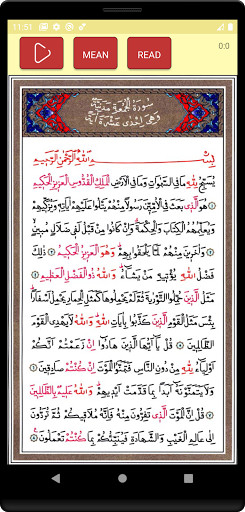 11:51
MEAN
READ
0:0
سُورَةُ الْجُمُعَةِ مَدَنِيَّةٌ
وَهِيَ إِحْدَى عَشْرَةَ آيَةً
بِسْمِ اللَّهِ الرَّحْمَنِ الرَّحِيمِ
يُسَبِّحُ لِلَّهِ مَا فِي السَّمَوَاتِ وَمَا فِي الْأَرْضِ الْمَلِكِ الْقُدُّوسِ الْعَزِيزِ الْحَكِيمِ
هُوَ الَّذِي بَعَثَ فِي الْأُمِّيِّينَ رَسُولًا مِنْهُمْ يَتْلُوا عَلَيْهِمْ آيَاتِهِ وَيُزَكِّيهِمْ
وَيُعَلِّمُهُمُ الْكِتَابَ وَالْحِكْمَةَ وَإِنْ كَانُوا مِنْ قَبْلُ لَفِي ضَلَالٍ مُبِينٍ
وَآخَرِينَ مِنْهُمْ لَمَّا يَلْحَقُوا بِهِمْ وَهُوَ الْعَزِيزُ الْحَكِيمُ ذَلِكَ
فَضْلُ اللَّهِ يُؤْتِيهِ مَنْ يَشَاءُ وَاللَّهُ ذُو الْفَضْلِ الْعَظِيمِ
مَثَلُ الَّذِينَ حُمِّلُوا التَّوْرٰيةَ ثُمَّ لَمْ يَحْمِلُوهَا كَمَثَلِ الْحِمَارِ يَحْمِلُ أَسْفَارًا
بِئْسَ مَثَلُ الْقَوْمِ الَّذِينَ كَذَّبُوا بِآيَاتِ اللَّهِ وَاللَّهُ لَا يَهْدِي الْقَوْمَ
الظَّالِمِينَ قُلْ يَا أَيُّهَا الَّذِينَ هَادُوا إِنْ زَعَمْتُمْ أَنَّكُمْ
أَوْلِيَاءُ لِلَّهِ مِنْ دُونِ النَّاسِ فَتَمَنَّوُا الْمَوْتَ إِنْ كُنْتُمْ صَادِقِينَ
وَلَا يَتَمَنَّوْنَهُ أَبَدًا بِمَا قَدَّمَتْ أَيْدِيهِمْ وَاللَّهُ عَلِيمٌ بِالظَّالِمِينَ
قُلْ إِنَّ الْمَوْتَ الَّذِي تَفِرُّونَ مِنْهُ فَإِنَّهُ مُلَاقِيكُمْ ثُمَّ تُرَدُّونَ
إِلَى عَالِمِ الْغَيْبِ وَالشَّهَادَةِ فَيُنَبِّئُكُمْ بِمَا كُنْتُمْ تَعْمَلُونَ